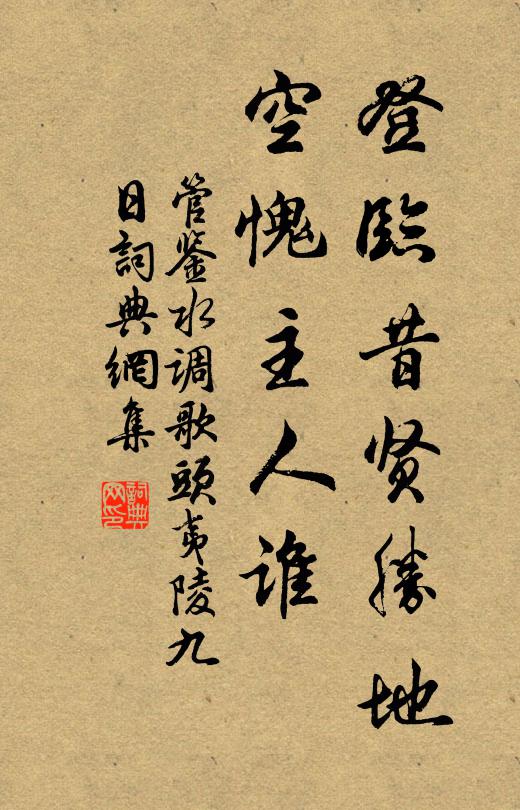 登臨昔贤勝地
空愧主人谁
管鉴水调歌頭夷陵九
日詞典網集
詞典网印